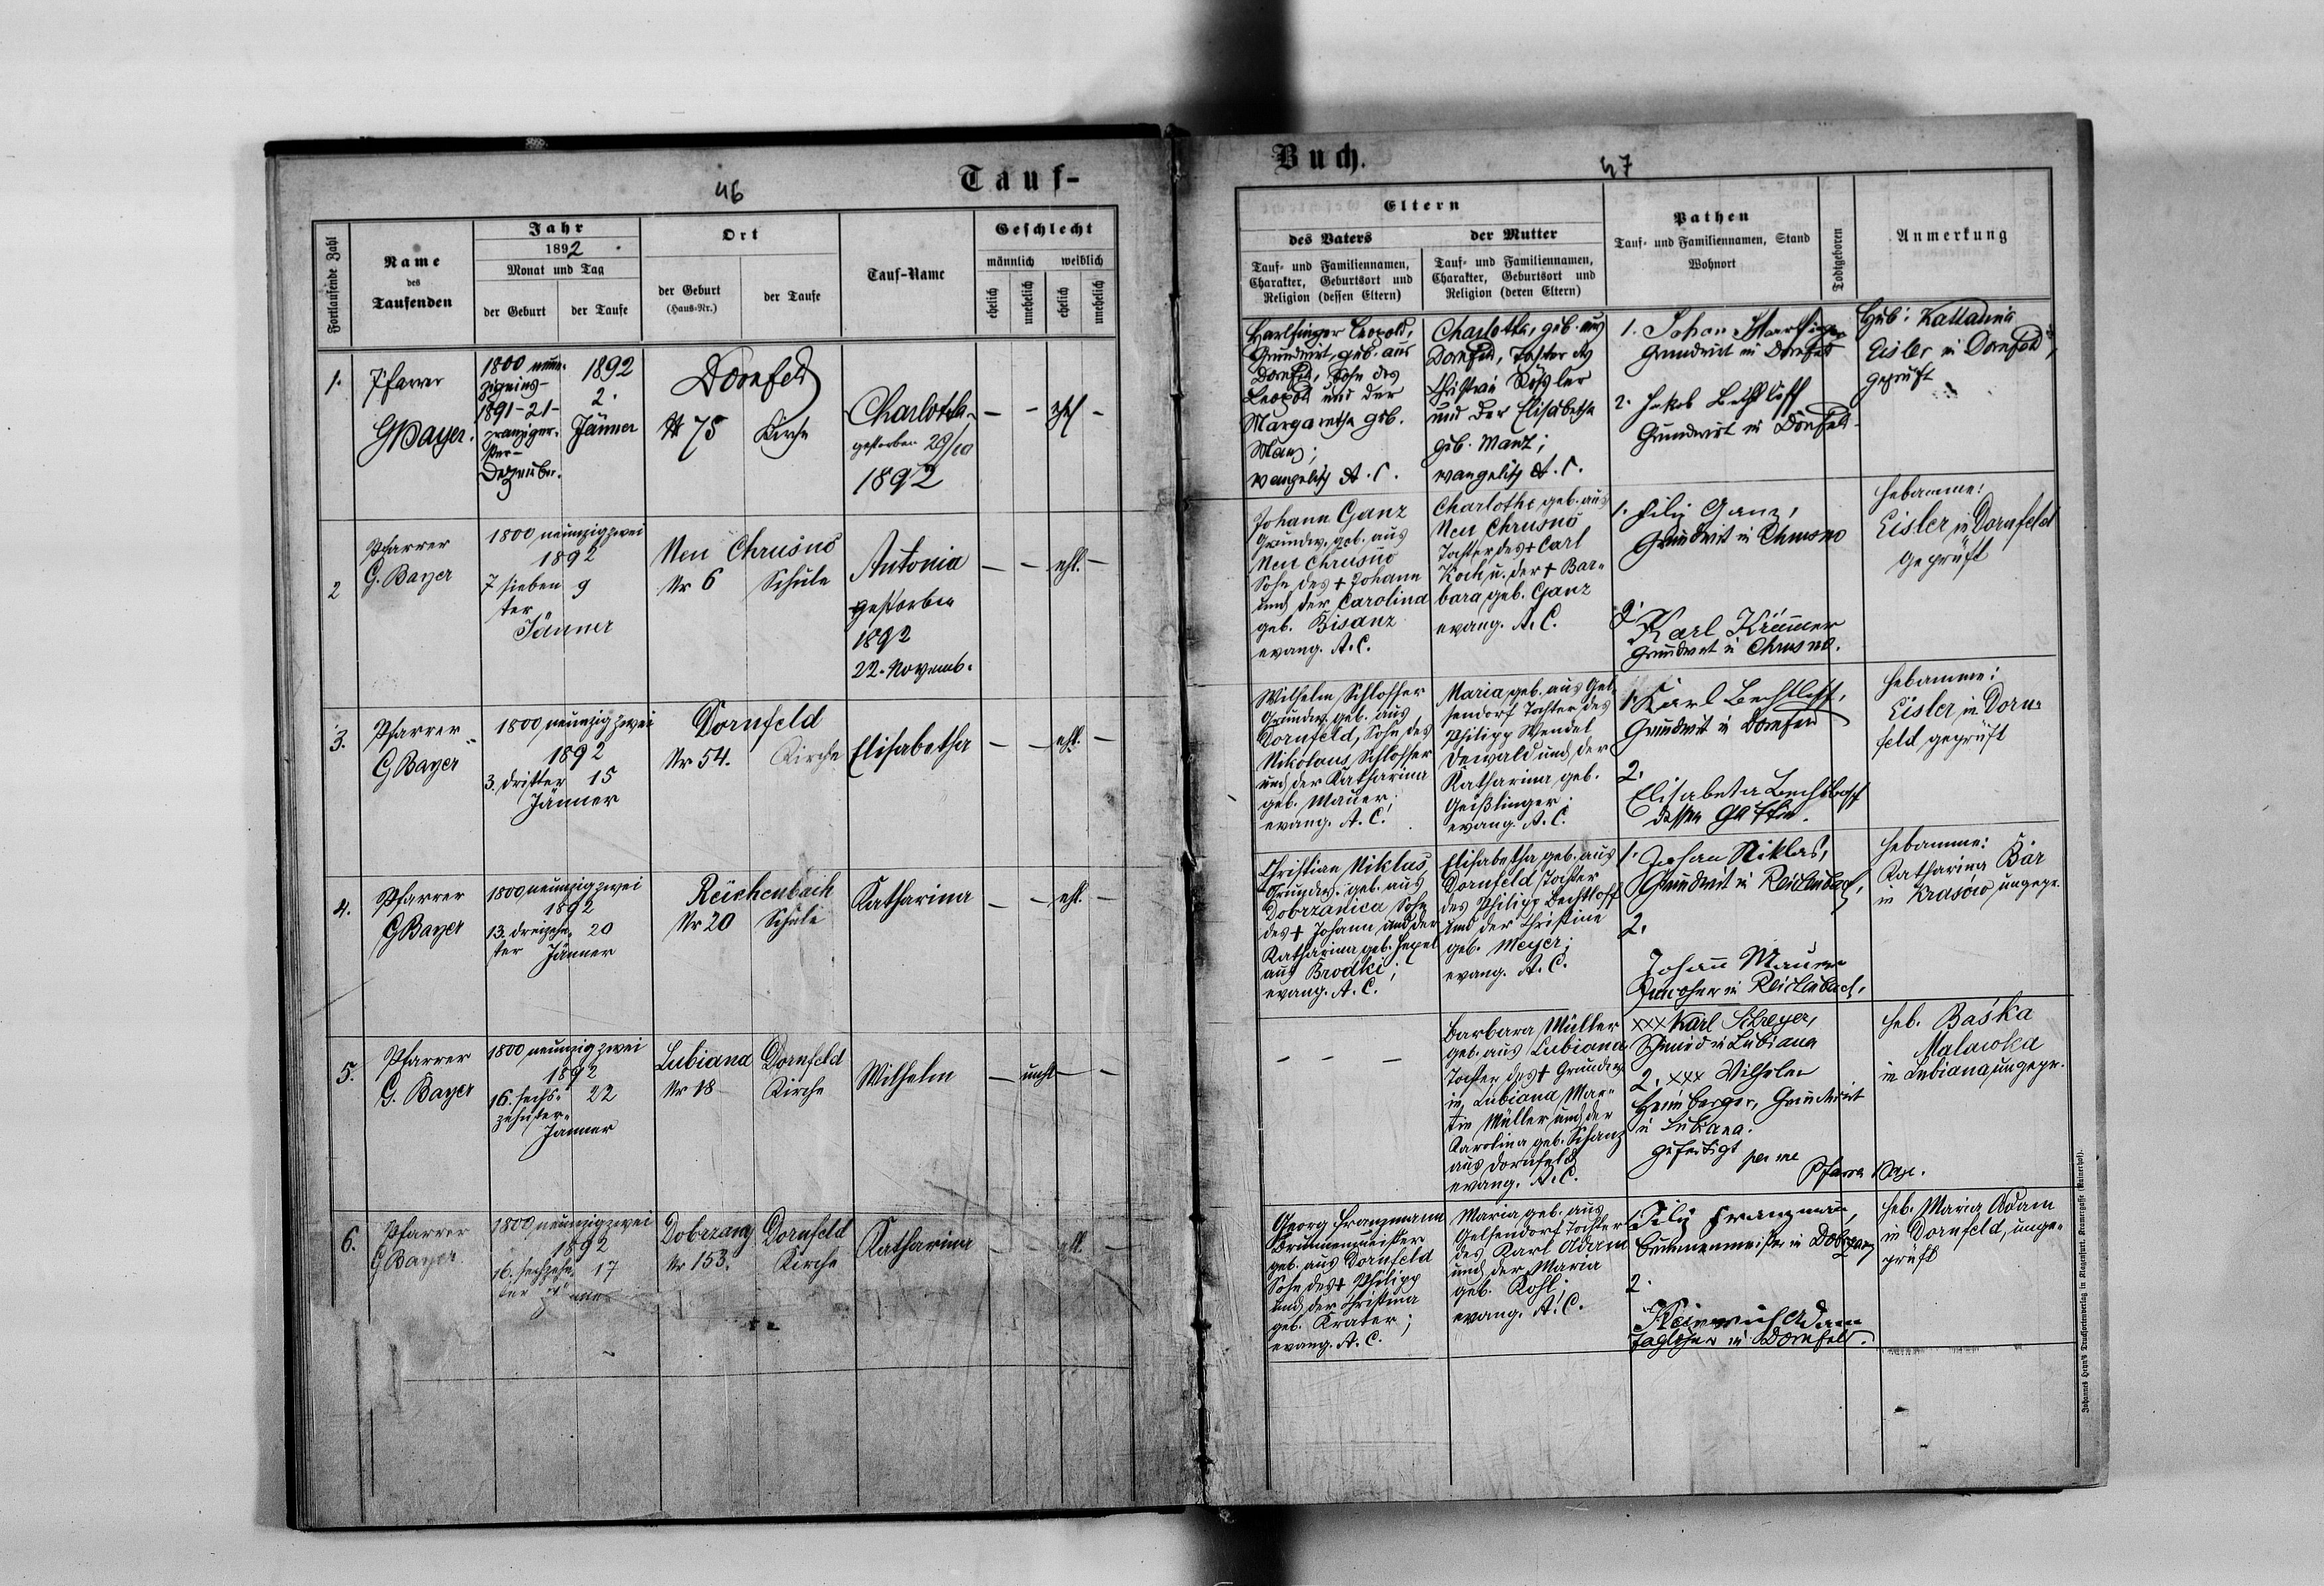 46
Tauf-
Fortlaufende Zahl
Name
des
Taufenden
Jahr
1892
Monat und Tag
der Geburt
der Taufe
Ort
der Geburt
(Haus-Nr.)
der Taufe
Tauf-Name
Geschlecht
männlich
weiblich
ehelich
unehelich
ehelich
unehelich
1.
Pfarrer
GBayer.
1800 neun-
zigeins-
1891-21-
zwanziger-
ster-
Dezember.
1892
2.
Jänner
Dornfeld
N 75
Kirche
Charlotha
gestorben 29/10
1892
— - ehel -
2
Pfarrer
G. Bayer
1800 neunzigzwei
1892
7 sieben 9
ter
Jänner
Neu Chrusno
Nr 6 Schule
Antonia
gestorben
1892
22. Novemb.
— - ehl. -
3.
Pfarrer
GBayer
1800 neunzig zwei
1892
3. dritter 15
Jänner
Dornfeld
Nr 54. Kirche
Elisabetha
— - ehl. -
4.
Pfarrer
GBayer
1800 neunzig zwei
1892
13. dreizehn- 20
ter Jänner
Reichenbach
Nr 20 Schule
Katharina
— - ehl. -
5.
Pfarrer
G. Bayer
1800 neunzig zwei
1892
16. sechs- 22
zehnter-
Jänner
Lubiana
Nr 18
Dornfeld
Kirche
Wilhelm
— unehl — -
6.
Pfarrer
GBayer.
1800 neunzigzwei
1892
16. sechzehn- 17
ter
Dobrzany
Nr 153.
Dornfeld
Kirche
Katharina
— - ehl. —
Buch.
47
Eltern
des Vaters
Tauf- und Familiennamen,
Charakter, Geburtsort und
Religion (dessen Eltern)
der Mutter
Tauf- und Familiennamen,
Charakter, Geburtsort und
Religion (deren Eltern)
Pathen
Tauf- und Familiennamen, Stand
Wohnort
Todtgeboren
Anmerkung
Harlfinger Leopold,
Grundwirt, geb. aus
Dornfeld, Sohn des
Leopold und der
Margaretha geb.
evangelisch A. C.
Charlotha, geb. aus
Dornfeld, Tochter des
Rößler
und der Elisabetha
geb. Manz;
evangelisch A. C.
1. Johan Harlfinger
Grundwirt in Dornfeld
2. Jakob Bechtloff
Grundwirt in Dornfeld.
Heb: Kattarina
Eisler in Dornfeld,
geprüft
Johann Ganz
Grundw. geb. aus
Neu Chrusno
Sohn des + Johann
und der Carolina
geb. Bisanz
evang. A. C.
Charlothe geb. aus
Neu Chrusno
Tochter des + Carl
Koch u. der + Bar-
bara geb. Ganz
evang. A. C.
1. Filip Ganz,
Grundwirt in Chrusno
2.
Karl Krämmer
Grundwirt in Chrusno.
Hebamme:
Eisler in Dornfeld
geprüft
Wilhelm Schlosser
Grundw. geb. aus
Dornfeld, Sohn des
Nikolaus Schlosser
und der Katharina
geb. Mauer;
evang. A. C.
Maria geb. aus Gel-
sendorf Tochter des
Philipp Wendel
Dewald und der
Katharina geb.
Geißlinger;
evang. A. C.
1. Karl Bechtloff,
Grundwirt in Dornfeld
2.
Elisabeta Bechtloff
dessen Gattin.
Hebamme:
Eisler in Dorn-
feld geprüft
Christian Niklas,
Grundw. geb. aus
Dobrzanica Sohn
des + Johann und der
Katharina geb.
aus Brodki;
evang. A. C.
Elisabetha geb. aus
Dornfeld Tochter
des Philipp Bechtloff
und der Christine
geb. Meyer;
evang. A. C.
1. Johan Niklas,
Grundwirt in Reichenbach,
2.
Johann Mauer
Inwohner in Reichenbach.
Hebamme:
Katharina Bär
in Krasów ungepr.
- - -
Barbara Müller
geb. aus Lubiana
Tochter des + Grundw.
in Lubiana Mar-
tin Müller und der
Karolina geb. Schanz
aus Dornfeld
evang. A. C.
xxx Karl Schreyer,
Schmied in Lubiana
2. xxx Wilhelm
Heimberger, Grundwirt
in Lubiana.
gefertigt per me
Pfarrer Baye.
Heb. Baśka
Malawska
in Lubiana ungepr.
Georg Franzmann
Brunnenmeister
geb. aus Dornfeld
Sohn des + Philipp
und der Christina
geb. Krater;
evang. A. C.
Maria geb. aus
Gelsendorf Tochter
des Karl Adam
und der Maria
geb. Kohl;
evang. A. C.
1. Filip Franzmann,
Brunnenmeister in Dobrzany
2.
Heinrich Adam
Taglöhner in Dornfeld.
Heb. Maria Adam
in Dornfeld, unge-
prüft
Johannes Heyn's Drucksortenverlag in Klagenfurt, Kramergasse (Rainerhof).